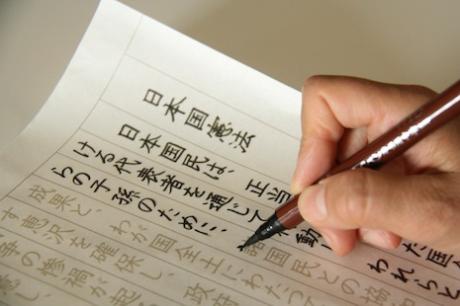 日本国憲法
日本国民は、正当 た国
ける代表者を通じて 動 われらと
らの子孫のために、 国民との
成果と、わが国全土にわた
す恵沢を確保し、政府
争の惨禍が起